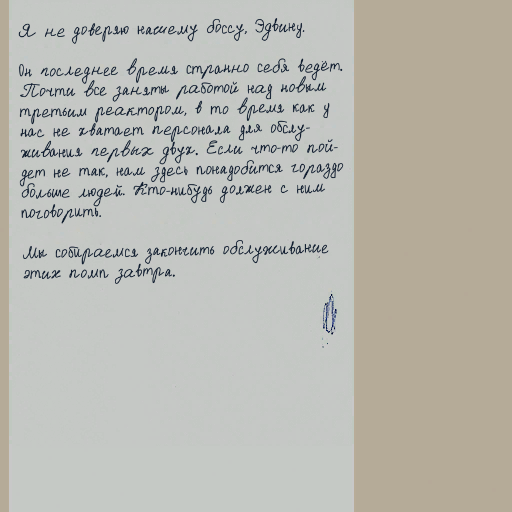 Я не доверяю нашему боссу, Эдвину.
Он последнее время странно себя ведёт.
Почти все заняты работой над новым
третьим реактором, в то время как у
нас не хватает персонала для обслу-
живания первых двух. Если что-то пой-
дет не так, нам здесь понадобится гораздо
больше людей. Кто-нибудь должен с ним
поговорить.
Мы собираемся закончить обслуживание
этих помп завтра.